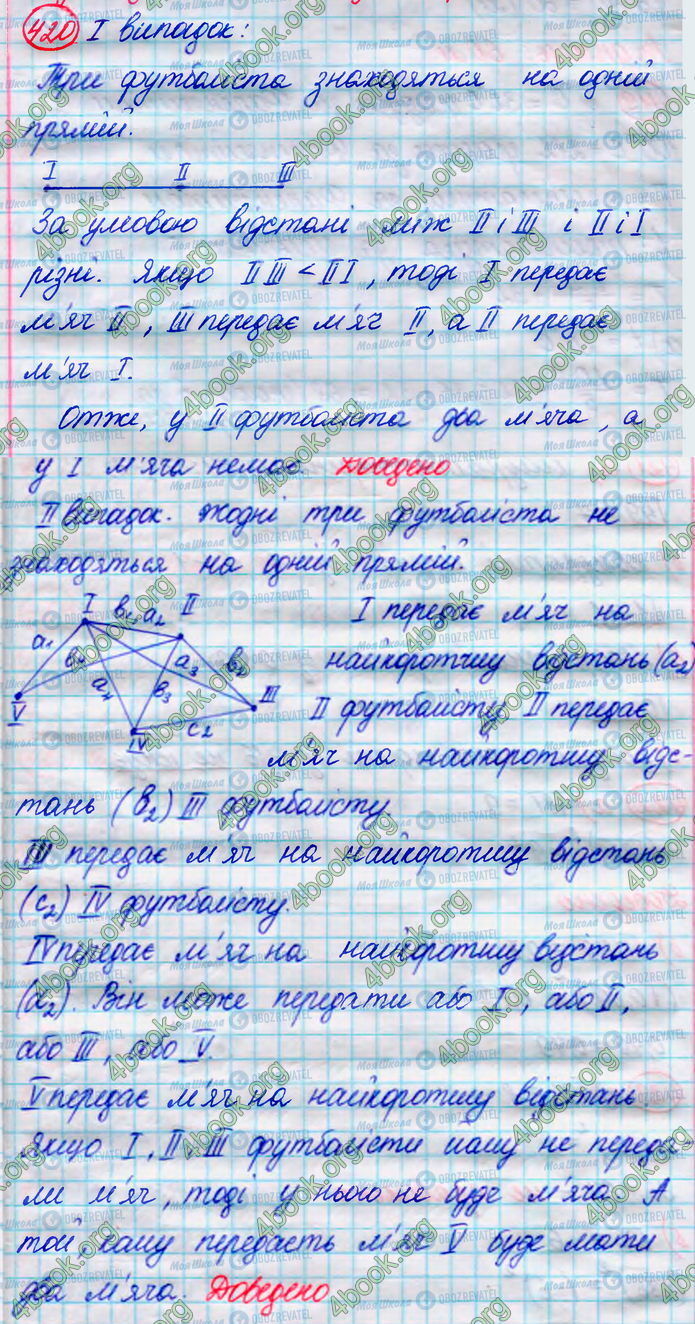 420 I випадок:
Три футболіста знаходяться на одній
прямій.
I II III
За умовою відстані між II і III і II і I
різні. Якщо II III < II I, тоді I передає
м'яч II, III передає м'яч II, а II передає
м'яч I.
Отже, у II футболіста два м'яча, а
у I м'яча немає. Доведено
II випадок. Жодні три футболіста не
знаходяться на одній прямій.
I передає м'яч на
найкоротшу відстань (a₂)
II футболісту, II передає
м'яч на найкоротшу відс-
тань (b₂) III футболісту
III передає м'яч на найкоротшу відстань
(c₂) IV футболісту.
IV передає м'яч на найкоротшу відстань
(d₂). Він може передати або I, або II,
або III, або V.
V передає м'яч на найкоротшу відстань
Якщо I, II, III футболісти йому не переда-
ли м'яч, тоді у нього не буде м'яча. А
той, кому передасть м'яч V буде мати
два м'яча. Доведено
I II III IV V
a₁ a₂ b₂ a₃ a₄ b₃ c₂